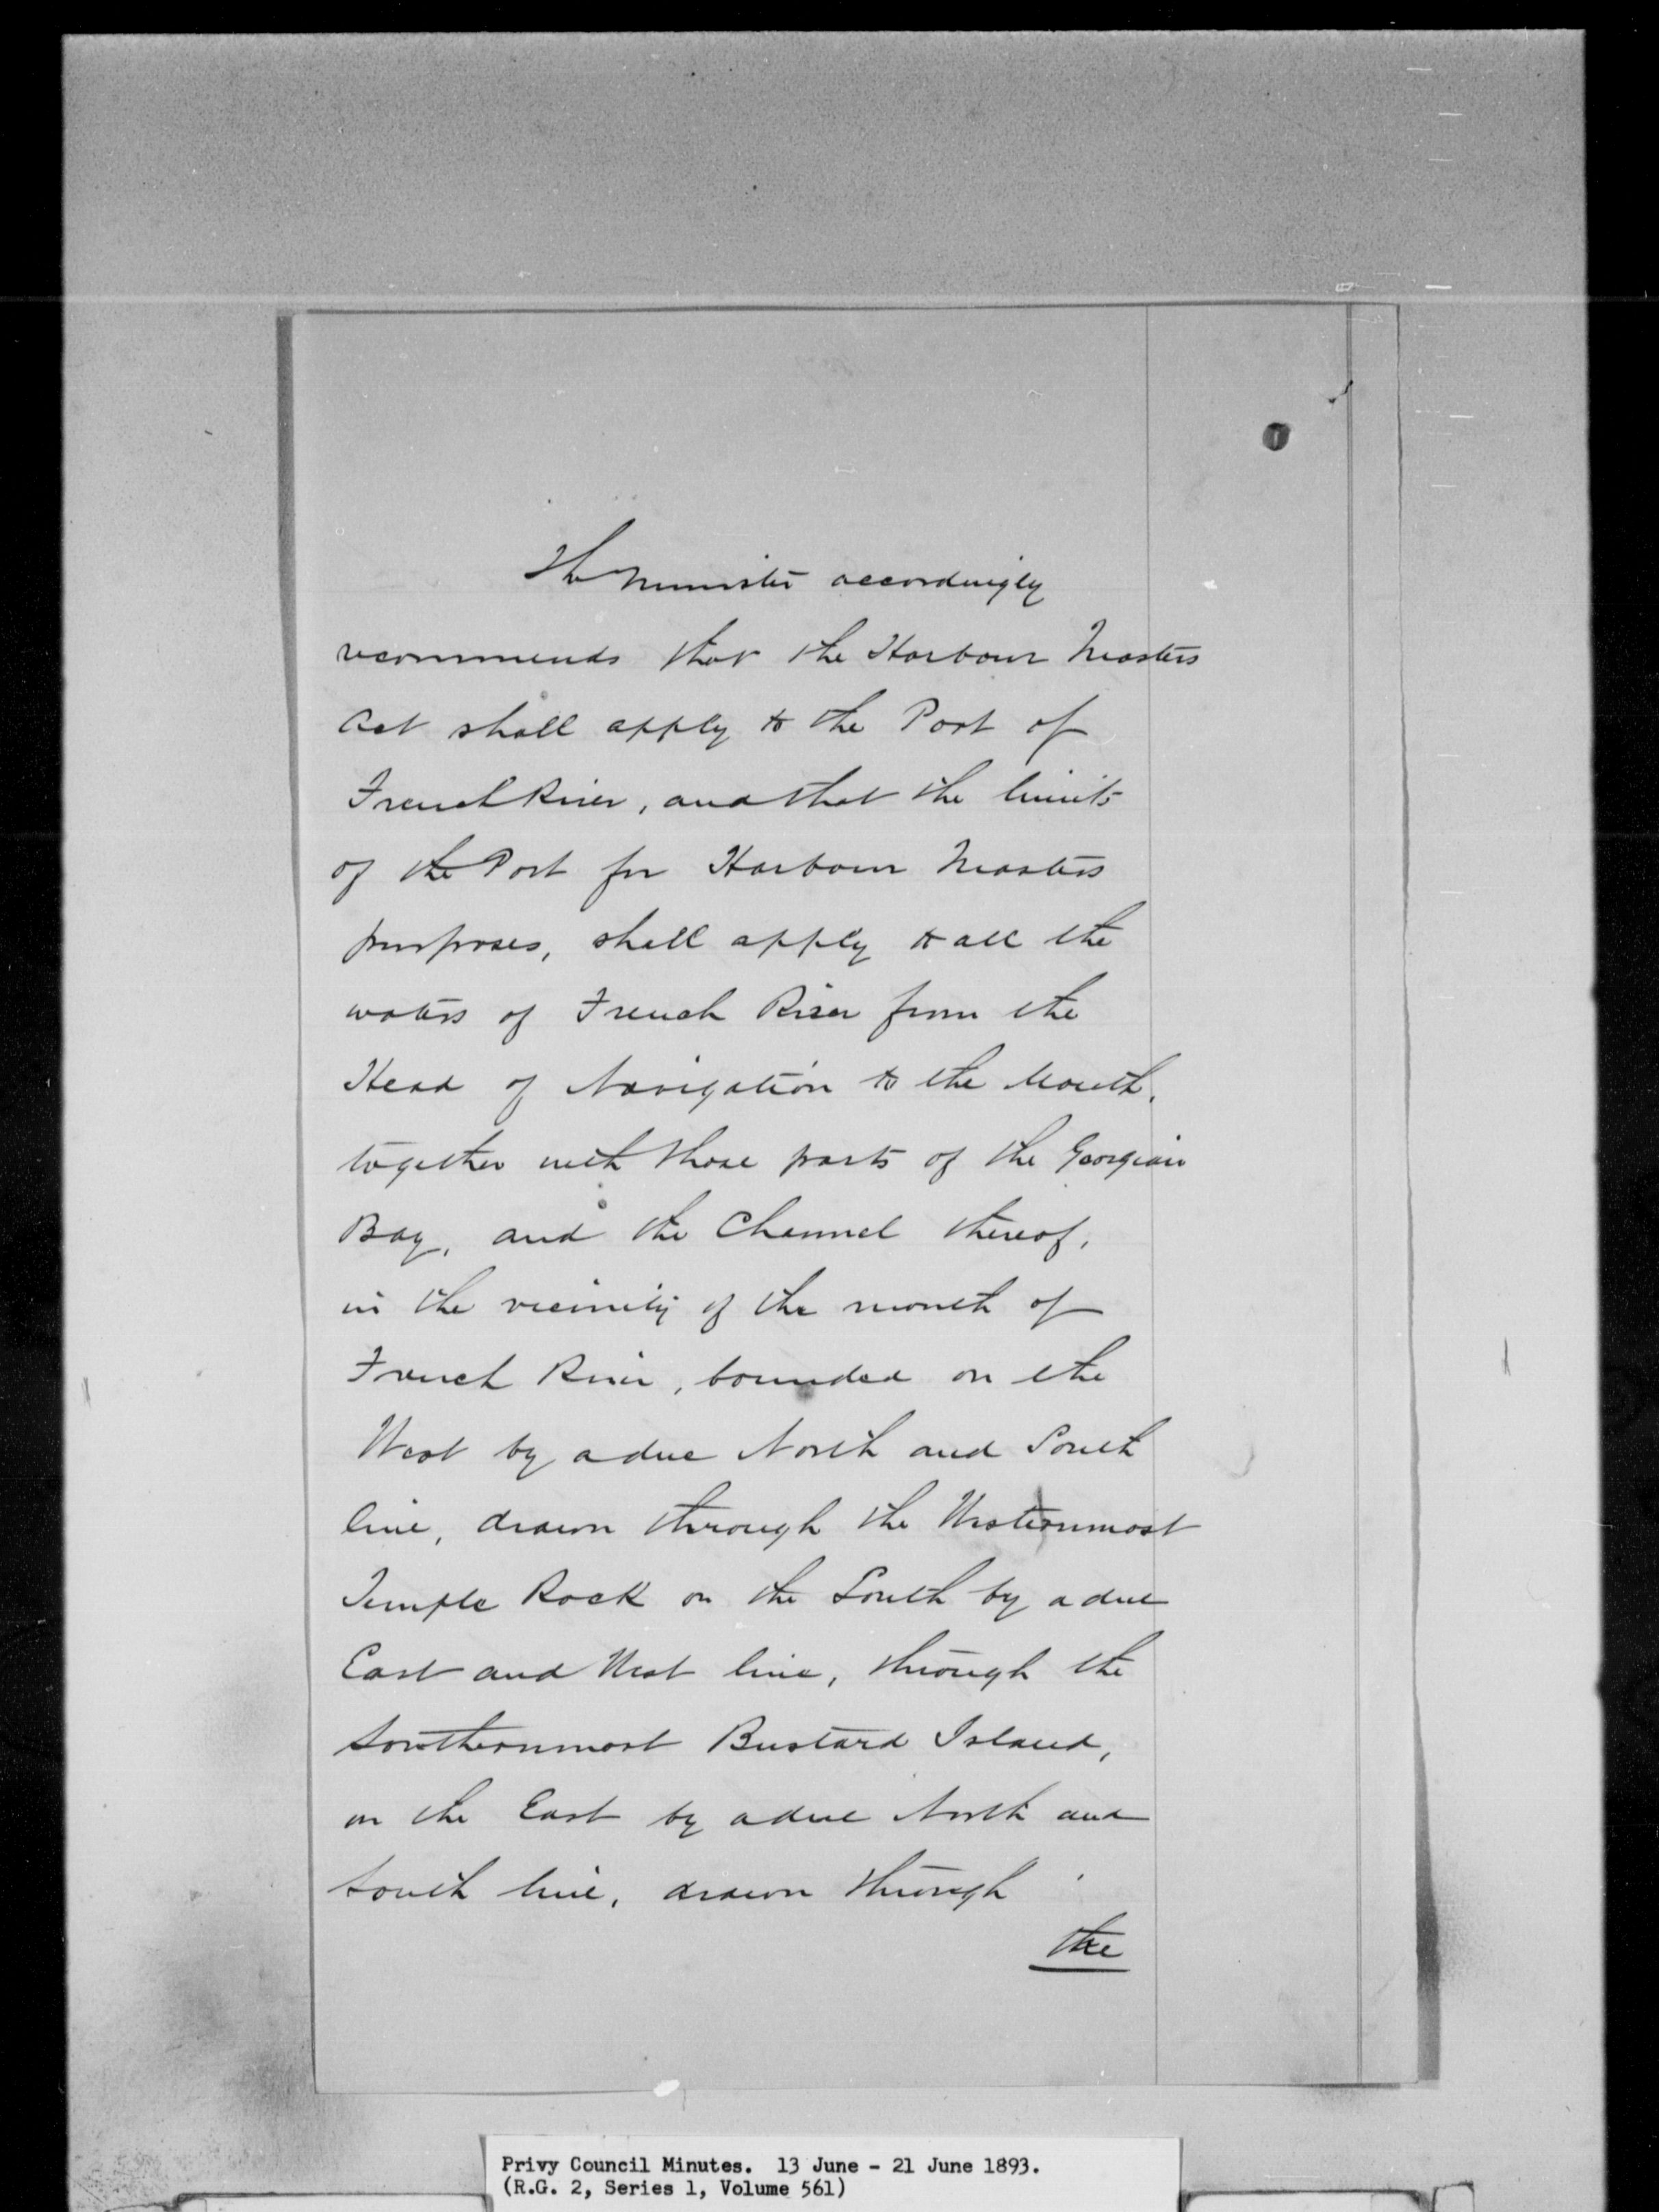 The Minister accordingly
recommends that the Harbour Masters
Act shall apply to the Port of
French River, and that the limits
of the Port for Harbour Masters
purposes, shall apply to all the
waters of French River from the
Head of Navigation to the Mouth,
together with those parts of the Georgian
Bay, and the Channel thereof,
in the vicinity of the mouth of
French River, bounded on the
West by a due North and South
line, drawn through the Westernmost
Temple Rock on the South by a due
East and West line, through the
Southernmost Bustard Island,
on the East by a due North and
South line, drawn through
the
Privy Council Minutes. 13 June - 21 June 1893.
(R.G. 2, Series 1, Volume 561)